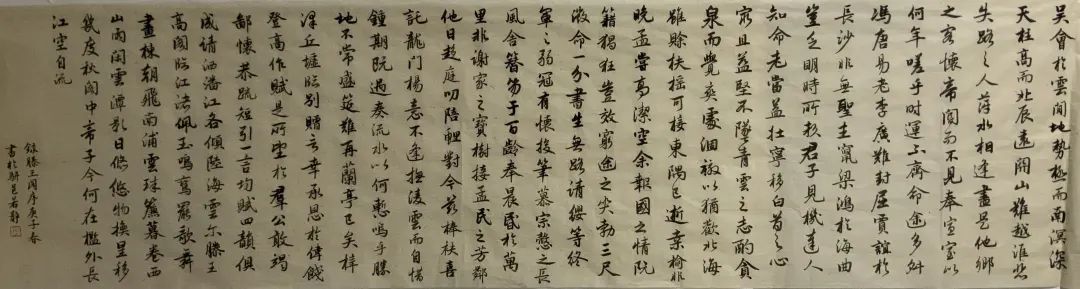 吴會於雲間地勢極而南溟深
天柱高而北辰遠關山難越誰悲
失路之人萍水相逢盡是他鄉
之客懷帝閽而不見奉宣室以
何年嗟乎時運不齊命途多舛
馮唐易老李廣難封屈賈誼於
長沙非無聖主竄梁鴻於海曲
豈乏明時所赖君子見機達人
知命老當益壯寧移白首之心
窮且益堅不墜青雲之志酌貪
泉而覺爽處涸辙以猶歡北海
雖賒扶摇可接東隅已逝桑榆非
晚孟嘗高潔空余報國之情阮
籍猖狂豈效窮途之哭勃三尺
微命一介書生無路請纓等終
軍之弱冠有懷投筆慕宗慤之長
風舍簪笏于百齡奉晨昏於萬
里非謝家之寶樹接孟氏之芳鄰
他日趨庭叨陪鯉對今兹捧袂喜
託龍門楊意不逢撫凌雲而自惜
鍾期既遇奏流水以何慙嗚乎勝
地不常盛筵難再蘭亭已矣梓
澤丘墟臨别贈言幸承恩於偉餞
登高作賦是所望於群公敢竭
鄙懷恭疏短引一言均賦四韻俱
成请洒潘江各傾陸海雲尔滕王
高閣临江渚佩玉鳴鸞罷歌舞
畫棟朝飛南浦雲珠簾暮卷西
山雨閑雲潭影日悠悠物換星移
幾度秋閣中帝子今何在檻外長
江空自流
錄滕王閣序庚子春
書於駢邑若静